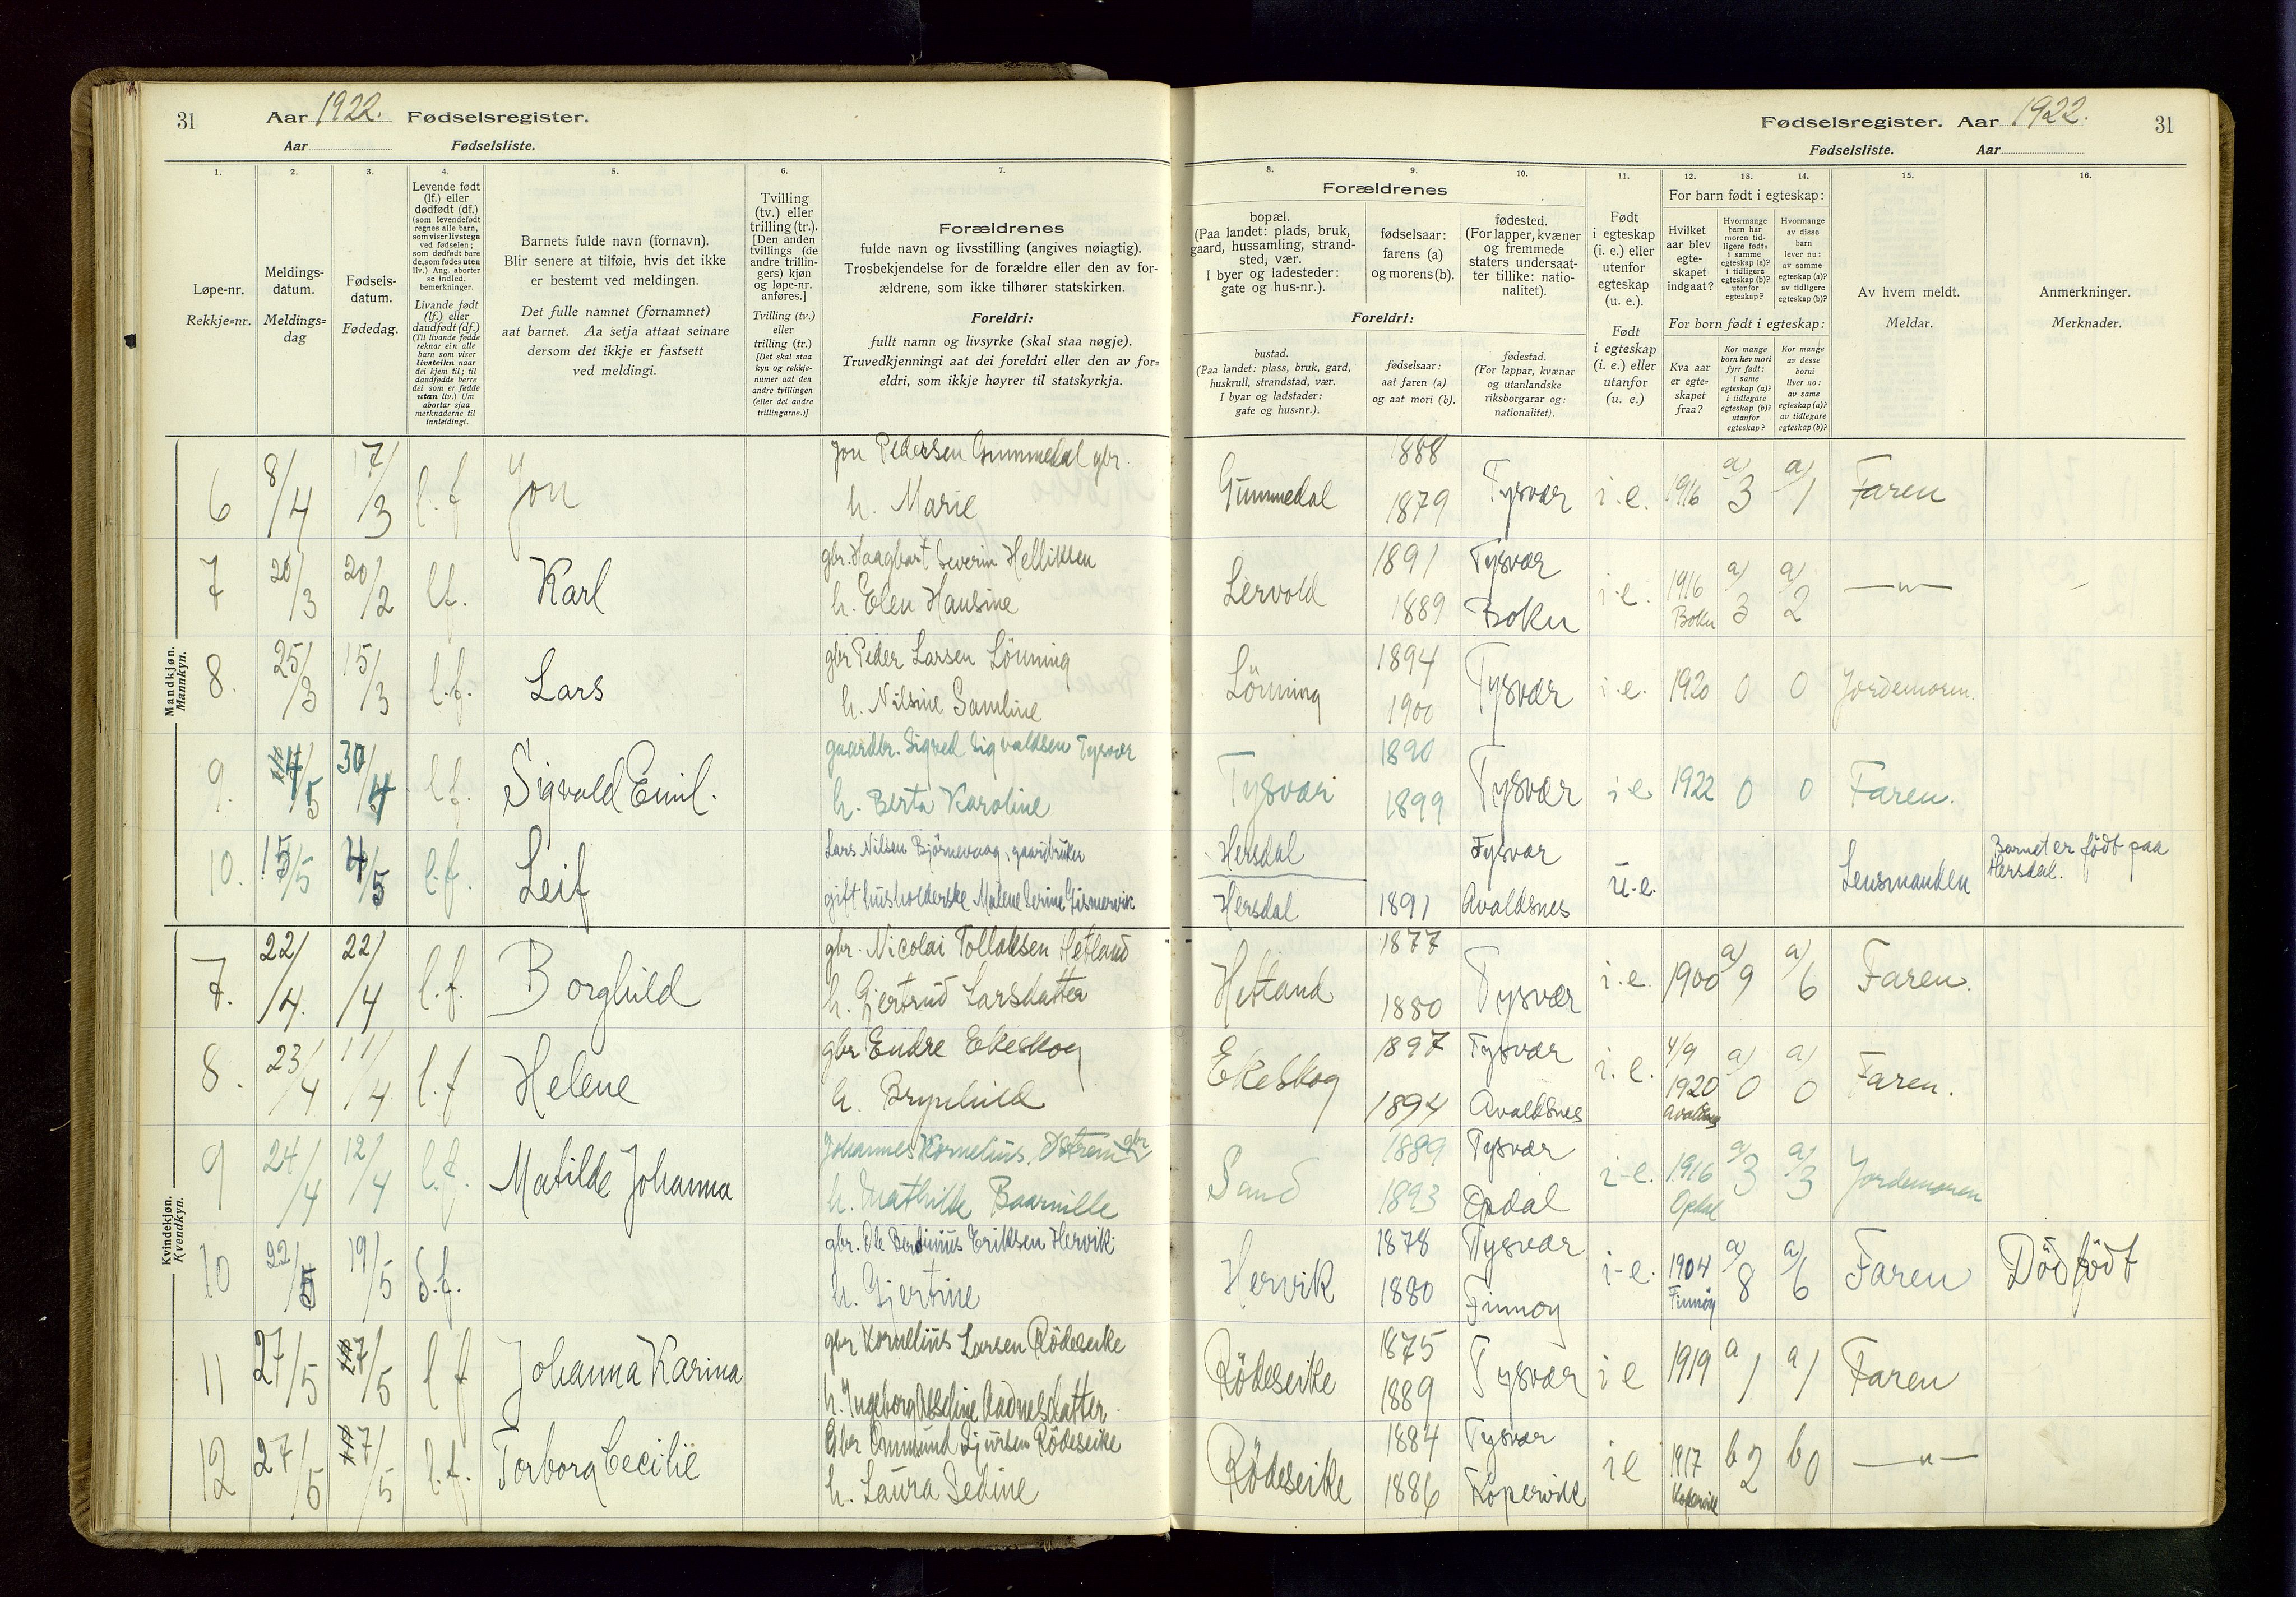 31
Aar 1922. Fødselsregister.
Aar Fødselsliste.
Fødselsregister. Aar 1922.
31
Fødselsliste. Aar
1.
Løpe-nr.
Rekkje=nr.
2.
Meldings-
datum.
Meldings=
dag
3.
Fødsels-
datum.
Fødedag.
4.
Levende født
(lf.) eller
dødfødt (df.)
(som levendefødt
regnes alle barn,
som viser livstegn
ved fødselen;
som dødfødt bare
de, som fødes uten
liv.) Ang. aborter
se indled.
bemerkninger.
Livande født
(lf.) eller
daudfødt (df.)
(Til livande fødde
reknar ein alle
barn som viser
livsteikn naar
dei kjem til; til
daudfødde berre
dei som er fødde
utan liv.) Um
abortar sjaa
merknaderne til
innleidingi.
5.
Barnets fulde navn (fornavn).
Blir senere at tilføie, hvis det ikke
er bestemt ved meldingen.
Det fulle namnet (fornamnet)
aat barnet. Aa setja attaat seinare
dersom det ikkje er fastsett
ved meldingi.
6.
Tvilling
(tv.) eller
trilling (tr.).
[Den anden
tvillings (de
andre trillin-
gers) kjøn
og løpe-nr.
anføres.]
Tvilling (tv.)
eller
trilling (tr.)
[Det skal staa
kyn og rekkje-
numer aat den
andre tvillingen
(eller dei andre
trillingarne.)]
7.
Forældrenes
fulde navn og livsstilling (angives nøiagtig).
Trosbekjendelse for de forældre eller den av for-
ældrene, som ikke tilhører statskirken.
Foreldri:
fullt namn og livsyrke (skal staa nøgje).
Truvedkjenningi aat dei foreldri eller den av for=
eldri, som ikkje høyrer til statskyrkja.
8.
Forældrenes
bopæl.
(Paa landet: plads, bruk,
gaard, hussamling, strand-
sted, vær.
I byer og ladesteder:
gate og hus-nr.).
Foreldri:
bustad.
(Paa landet: plass, bruk, gard,
huskrull, strandstad, vær.
I byar og ladstader:
gate og hus=nr.).
9.
fødselsaar:
farens (a)
og morens (b).
fødselsaar:
aat faren (a)
og aat mori (b).
10.
fødested.
(For lapper, kvæner
og fremmede
staters undersaat-
ter tillike: natio-
nalitet).
fødestad.
(For lappar, kvænar
og utanlandske
riksborgarar og:
nationalitet).
11.
Født
i egteskap
(i. e.) eller
utenfor
egteskap
(u. e.).
Født
i egteskap
(i. e.) eller
utanfor
(u. e.)
12.
For barn født i egteskap:
Hvilket
aar blev
egte-
skapet
indgaat?
For born født i egteskap:
Kva aar
er egte=
skapet
fraa?
13.
Hvormange
barn har
moren tid-
ligere født:
i samme
egteskap (a)?
i tidligere
egteskap (b)?
utenfor
egteskap?
Kor mange
born hev mori
fyrr født:
i same
egteskap (a)?
i tidlegare
egteskap (b)?
utanfor
egteskap?
14.
Hvormange
av disse
barn
lever nu:
av samme
egteskap (a)?
av tidligere
egteskap (b)?
Kor mange
av desse
borni
liver no:
av same
egteskap (a)?
av tidlegare
egteskap (b)?
15.
Av hvem meldt.
Meldar.
16.
Anmerkninger.
Merknader.
Mandkjøn.
Mannkyn.
6 8/4 17/3 l.f Jon
Jon Pedersen Gummedal gbr.
h. Marie
Gummedal 1888 1879 Tysvær i.e. 1916 a) 3 a) 1 Faren
7 20/3 20/2 l.f. Karl
gbr. Haagbart Severin Helliksen
h. Elen Hansine
Lervold 1891 Tysvær 1889 Bokn i.e. 1916 Bokn a) 3 a) 2 —"—
8. 25/3 15/3 l.f. Lars
gbr Peder Larsen Lönning
h. Nilsine Samline
Lönning 1894 1900 Tysvær i.e. 1920 0 0 Jordemoren.
9. 4/5 30/4 l.f. Sigvald Emil.
gaardbr. Sigved Sigvaldsen Tysvær
h. Berta Karoline
Tysvær 1890 1899 Tysvær i.e 1922 0 0 Faren.
10. 15/5 4/5 l.f. Leif
Lars Nilsen Björnevaag, gaardbruker
gift husholderske Malene Serine Gismervik
Hersdal Tysvær
Hersdal 1891 Avaldsnes u.e. Lensmanden
Barnet er födt paa
Hersdal.
Kvindekjøn.
Kvendkyn.
7. 22/4. 22/4 l.f. Borghild
gbr. Nicolai Tollaksen Hetland
h. Gjertrud Larsdatter
Hetland 1877 1880 Tysvær i.e. 1900 a) 9 a) 6 Faren.
8. 23/4 11/4 l.f Helene
gbr Endre Ekeskog
h. Brynhild
Ekeskog 1897 Tysvær 1894 Avaldsnes i.e. 4/9 1920 Avaldsnes a) 0 a) 0 Faren.
9 24/4 12/4 l.f. Matilde Johanna
Johannes Kornelius Østrem gbr
h. Mathilde Baarnille
Sand 1889 Tysvær 1893 Opdal i-e. 1916 Opdal a) 3 a) 3 Jordemoren
10 22/5 19/5 d.f.
gbr. Ole Berdinius Eriksen Hervik
h. Gjertine
Hervik 1878 Tysvær 1880 Finnøy i-e. 1904 Finnöy a) 8 a) 6 Faren Död födt
11 27/5 7/5 l f Johanna Karina
gbr Kornelius Larsen Rödeseike
h. Ingeborg Aadnesdatter
Rödeseike 1875 1889 Tysvær i e 1919 a 1 a 1 Faren
12 27/5 7/5 l.f. Torborg Cecilie
Gbr Ommund Sjursen Rödeseike
h. Laura Sedine
Rödeseike 1884 Tysvær 1886 Kopervik i e 1917 Kopervik b 2 b 0 —"—